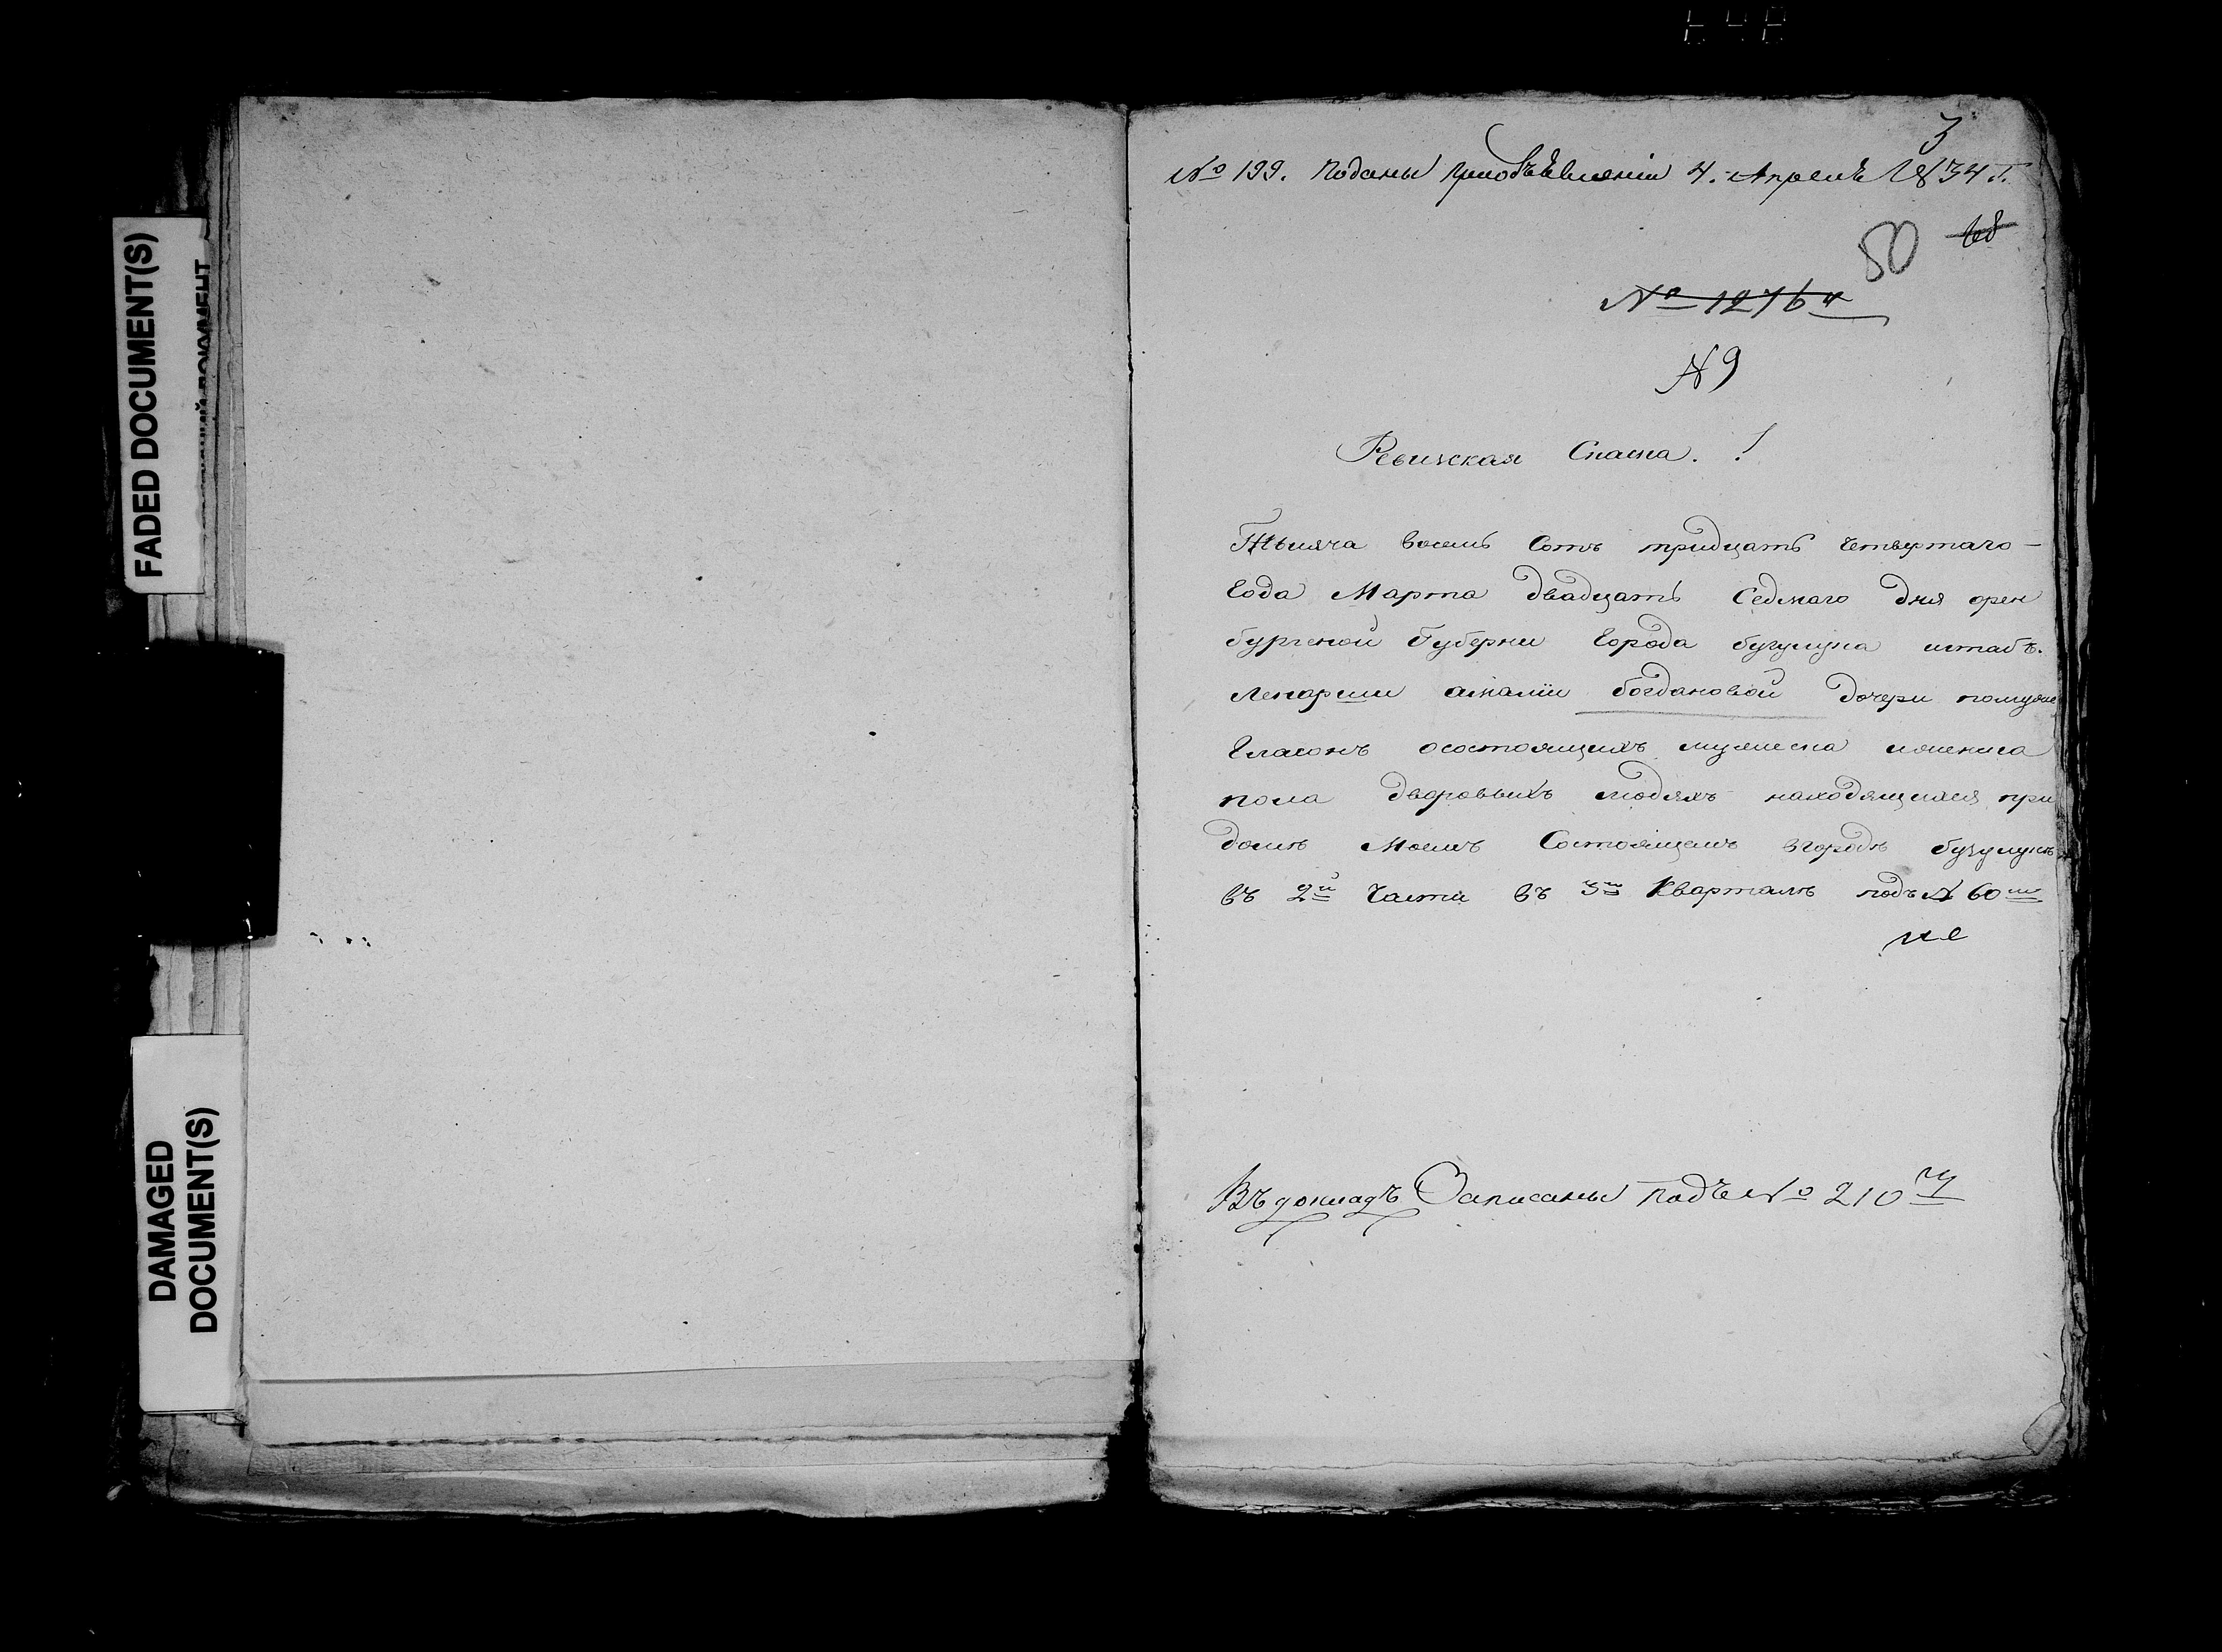 FADED DOCUMENT(S)
DAMAGED
DOCUMENT(S)
3
№ 199. Поданы приобъявлении 4. Апреля 1834 г.
80 68
№ 12764
№ 9
Ревизская Скаска. !
Тысяча восемь Сотъ тридцать четвертаго
Года Марта двадцать Седмаго дня орен
бургской Губерни Города бузулука штабъ.
Лекарши богдановой дочери
осостоящихъ мужеска иженска
пола дворовыхъ людяхъ находящихся при
доме Моемъ Состоящемъ вгороде бузулуке
въ 2й Части въ 3м Квартале подъ № 60м
Въ докладъ Записаны подъ № 210